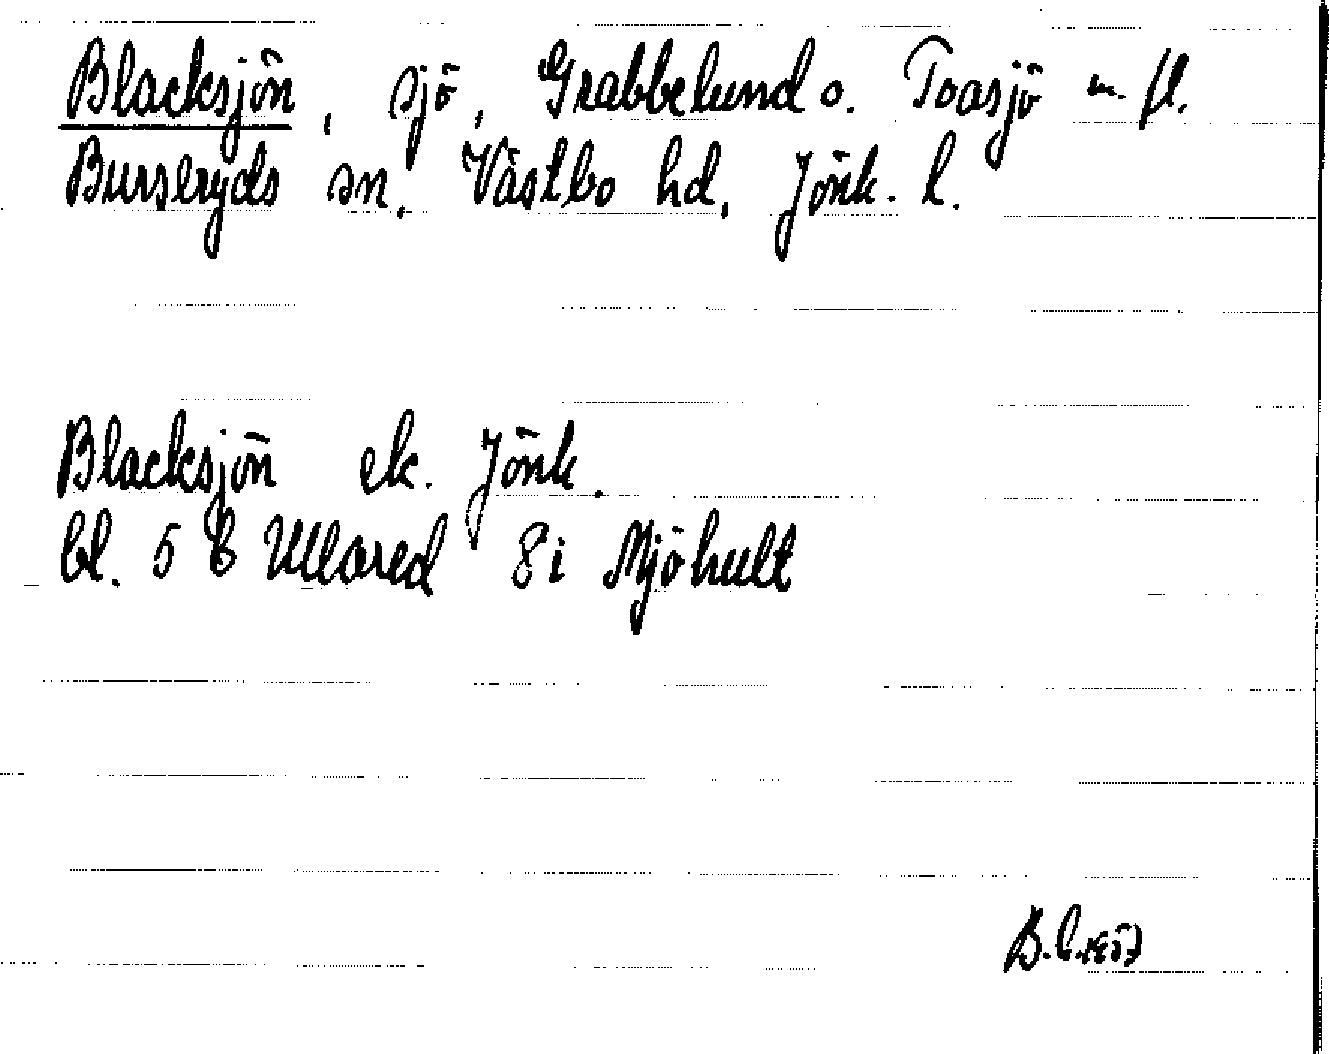 Blacksjön, sjö, Grabbelund o. Toasjö m. fl.
Burseryds sn, Västbo hd, Jönk. l.
Blacksjön ek. Jönk.
bl. 5 C Ullared 8 i Mjöhult